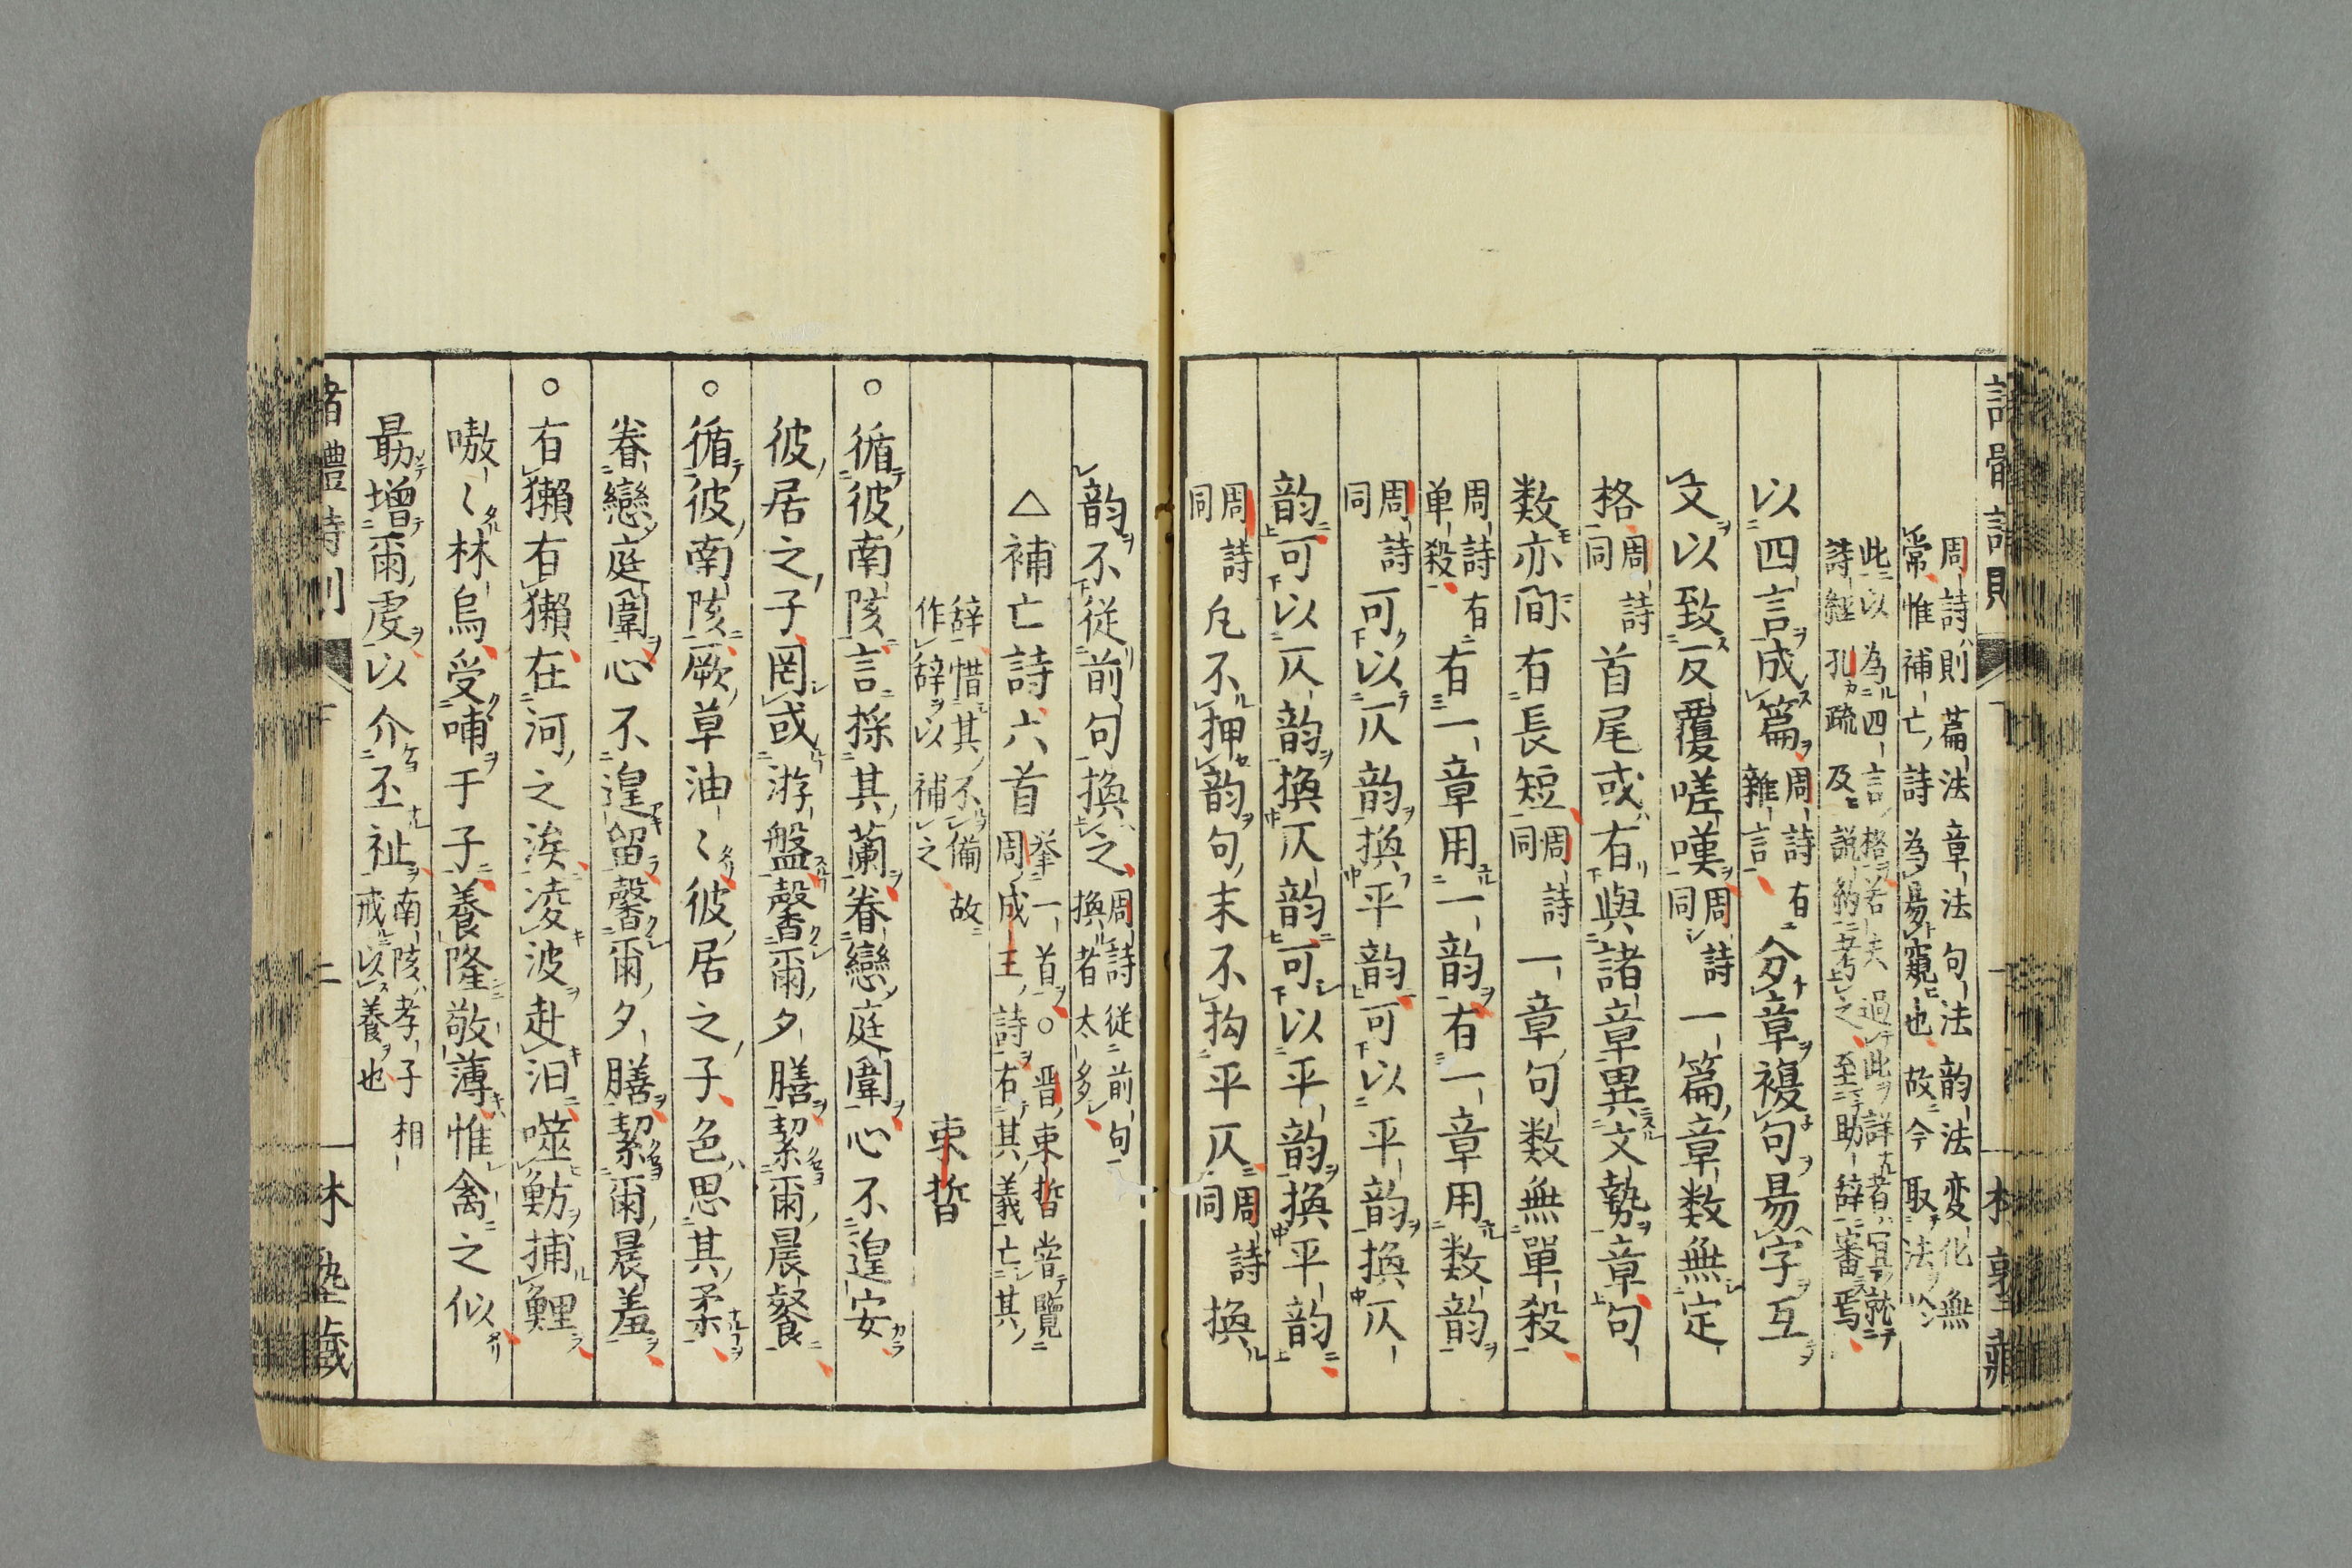 周詩則篇法章法句法韵法変化無
常惟補亡詩為易窺也故今取法於
此以為四言格若夫過此詳者宜就
詩經孔疏及説約考之至助辞審焉
以四言成篇周詩有
雜言分章複句易字互
文以致反覆嗟嘆周詩
同一篇章数無定
格周詩
同首尾或有與諸章異文勢章句
数亦間有長短周詩
同一章句数無單殺
周詩有
单殺有一章用一韵有一章用数韵
周詩
同可以仄韵換平韵可以平韵換仄
韵可以仄韵換仄韵可以平韵換平韵
周詩
同凡不押韵句末不拘平仄周詩
同換
韵不從前句換之周詩從前句
換者太多
△補亡詩六首挙一首○晋束晳嘗覽
周成王詩有其義亡其
辞惜其不備故
作辞以補之束晳
○循彼南陔言採其蘭眷戀庭闈心不遑安
彼居之子罔或游盤馨爾夕膳絜爾晨餐
○循彼南陔厥草油〻彼居之子色思其柔
眷戀庭闈心不遑留馨爾夕膳絜爾晨羞
○有獺有獺在河之涘凌波赴汨噬魴捕鯉
嗷〻林烏受哺于子養隆敬薄惟禽之似
最増爾虔以介丕祉南陔孝子相
戒以養也